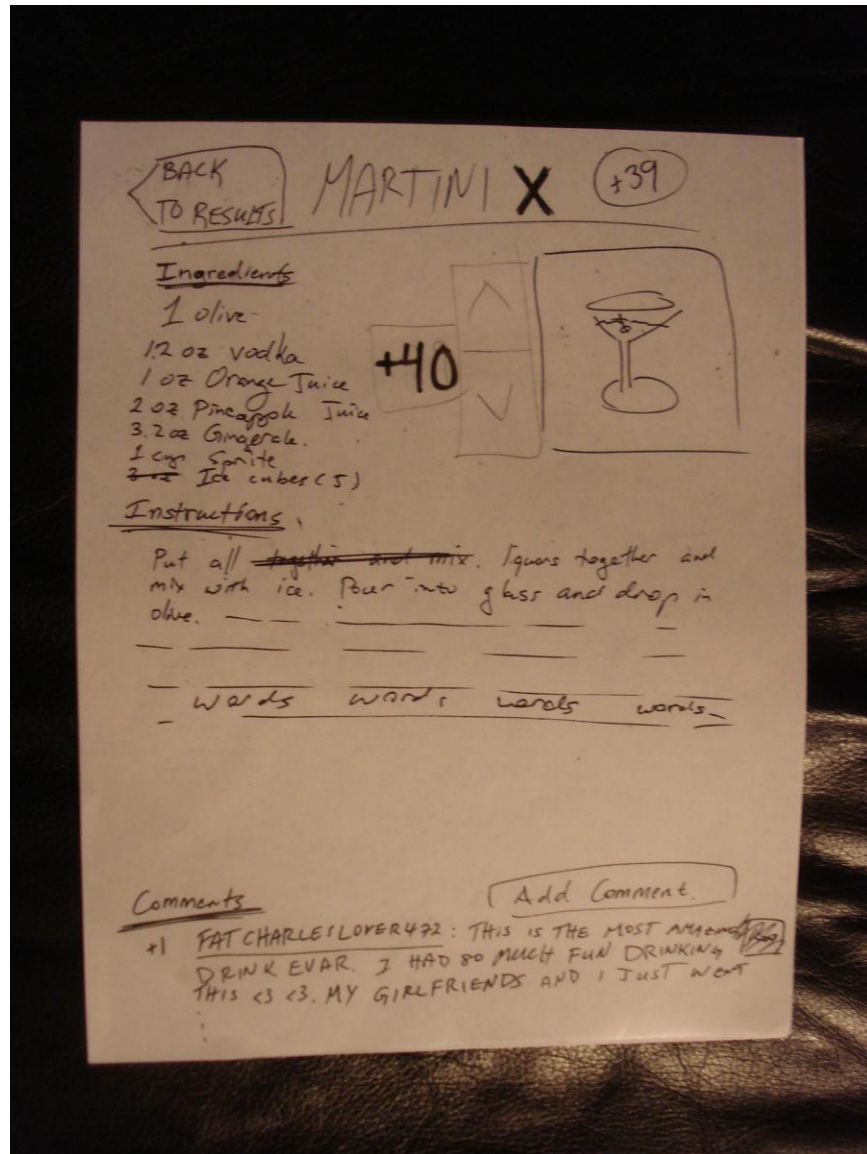 BACK
TO RESULTS
MARTINI X
+39
Ingredients
1 olive
1.2 oz vodka
1 oz Orange Juice
2 oz Pineapple Juice
3.2 oz Gingerale.
1 cup Sprite
Ice cubes (5)
+40
Instructions
Put all together and mix. liquors together and
mix with ice. Pour into glass and drop in
olive.
words words words words
Comments
Add Comment.
+1 FATCHARLESLOVER472: THIS IS THE MOST
DRINK EVAR. I HAD SO MUCH FUN DRINKING
THIS <3 <3. MY GIRLFRIENDS AND I JUST WENT